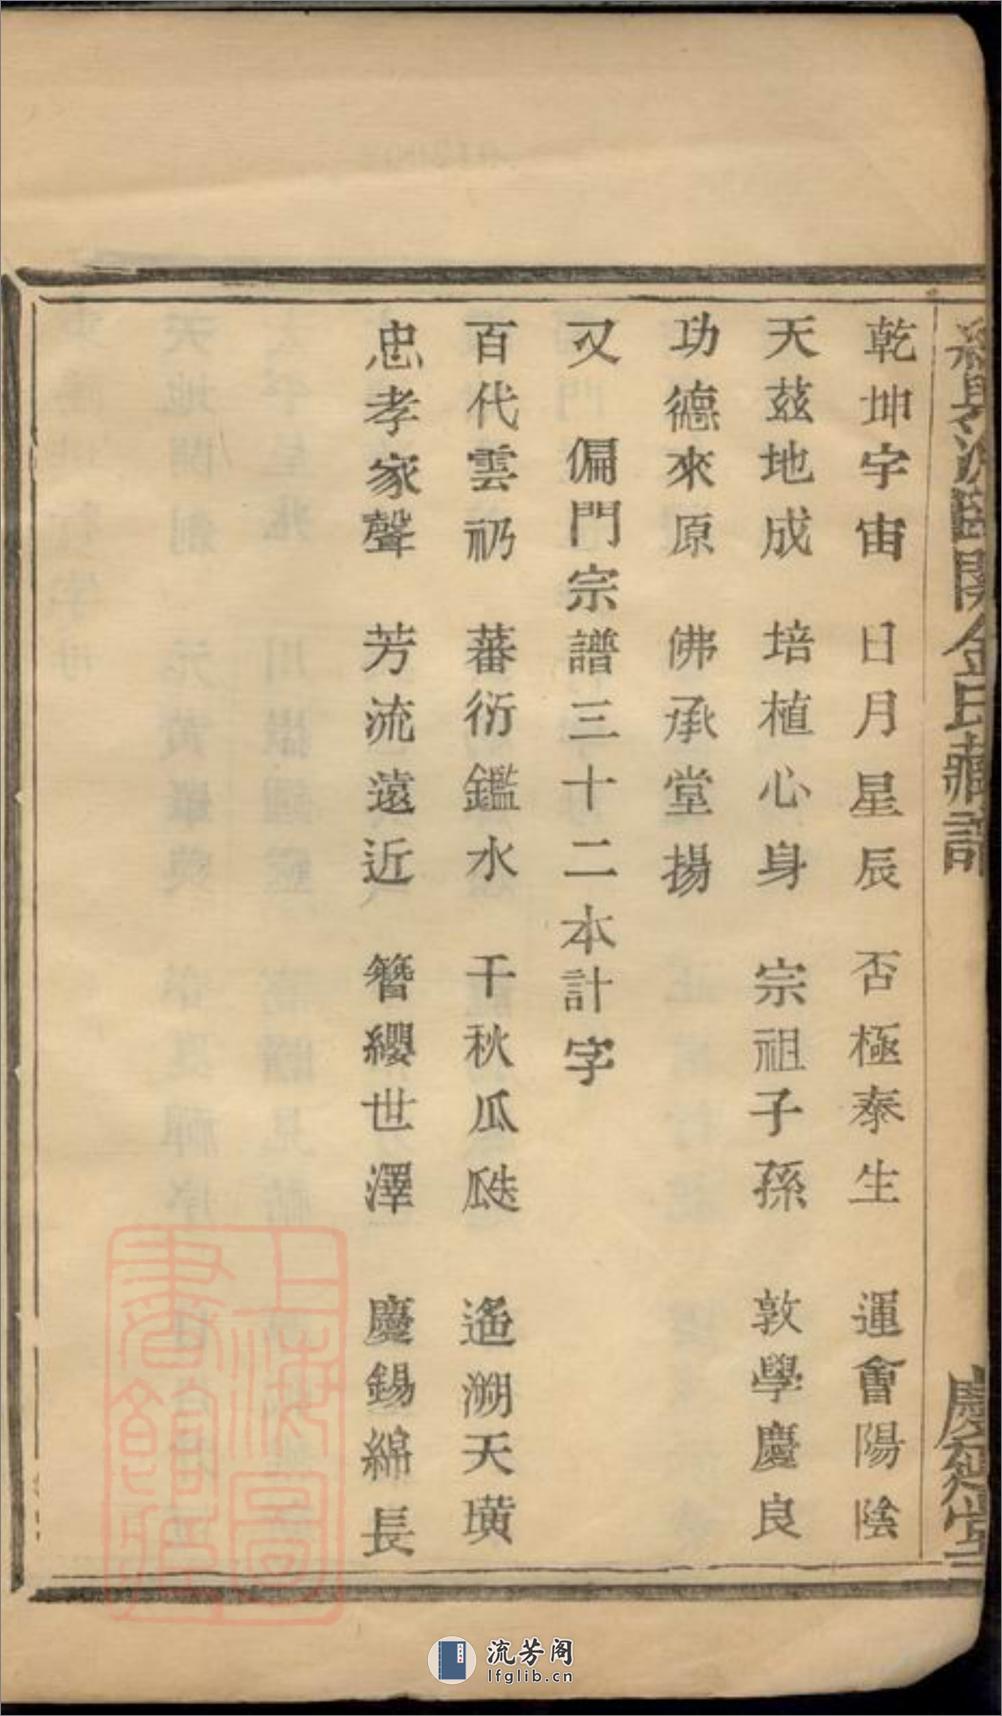 乾坤宇宙　日月星辰　否極泰生　運會陽陰
天茲地成　培植心身　宗祖子孫　敦學慶良
功德來原　佛承堂揚
又　偏門宗譜三十二本計字
百代雲礽　蕃衍鑑水　千秋瓜瓞　遙溯天璜
忠孝家聲　芳流遠近　簪纓世澤　慶錫綿長
金氏藏譜
慶延堂
上海圖書館藏
流芳阁
lfglib.cn